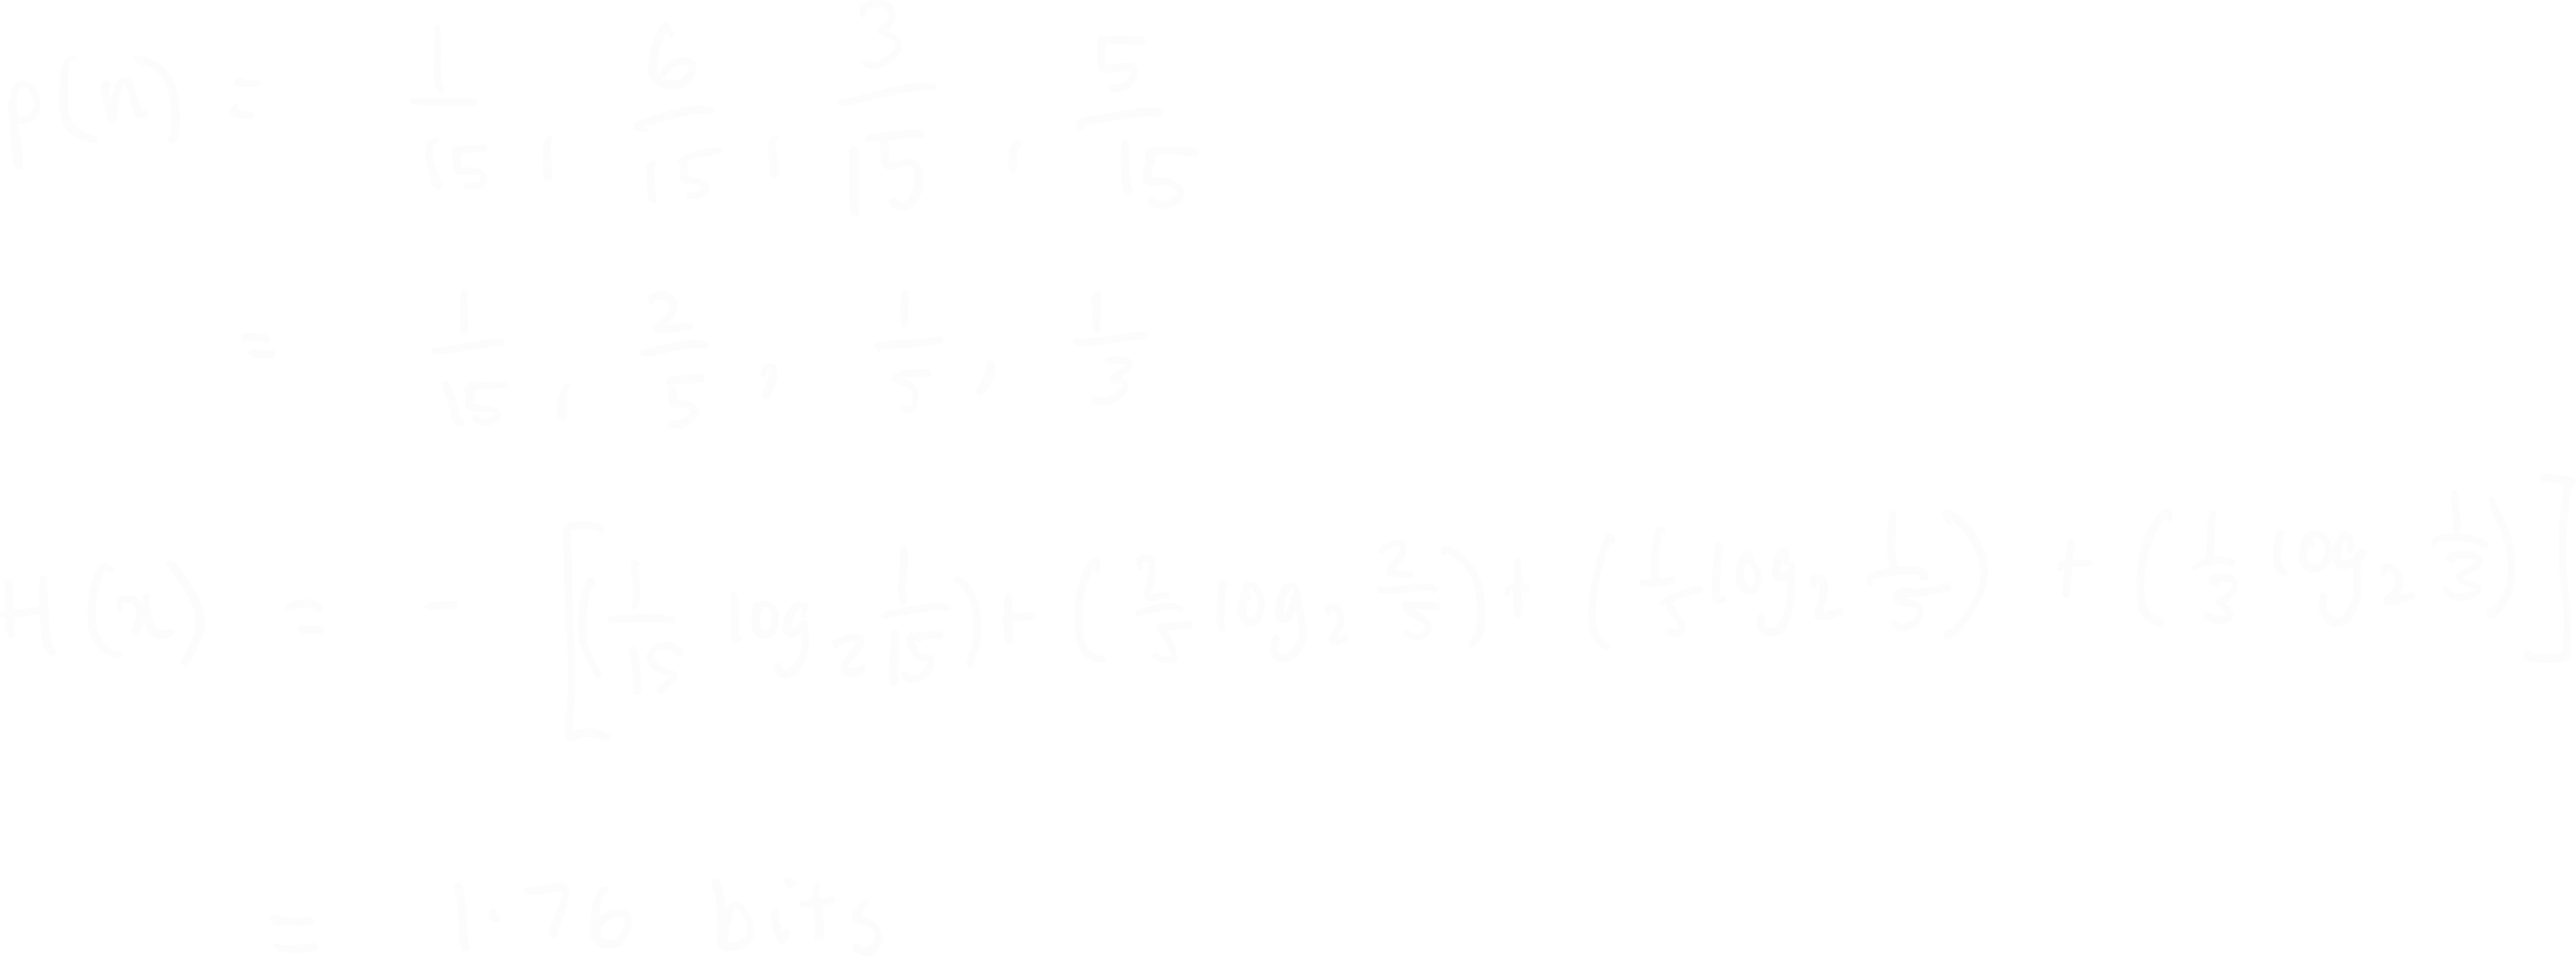 p(n) = 1/15, 6/15, 3/15, 5/15
= 1/15, 2/5, 1/5, 1/3
H(x) = - [(1/15 log₂ 1/15) + (2/5 log₂ 2/5) + (1/5 log₂ 1/5) + (1/3 log₂ 1/3)]
= 1.76 bits